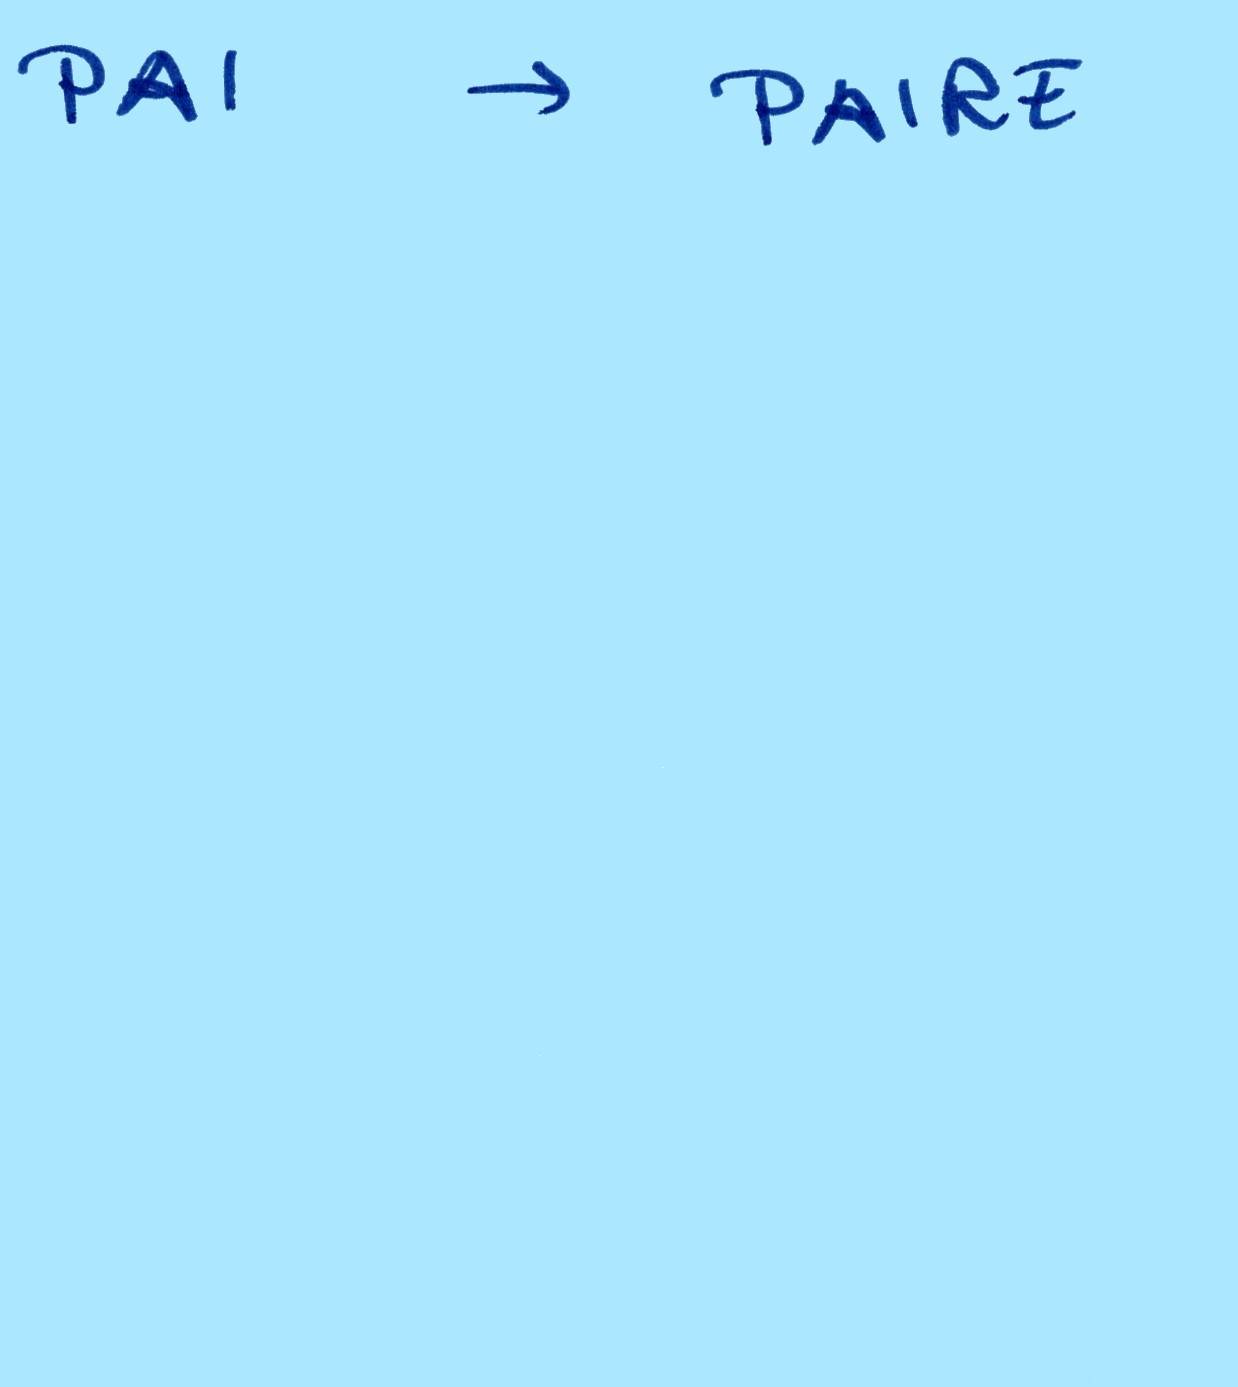 PAI → PAIRE